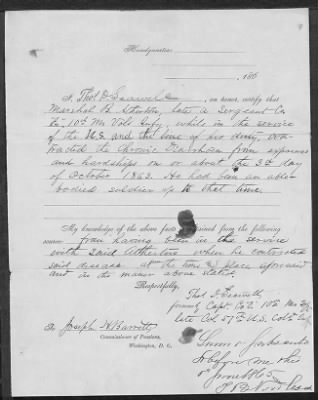 Headquarters
186
I, Thos. D. Seawell, on honor, certify that
Marshal B. Atherton, late a Sergeant Co.
"E" 10th Mo Vols Infy, while in the service
of the U.S. and the line of his duty, con-
tracted the Chronic Diarrhoea from exposure
and hardships on or about the 3d day
of October 1863. He had been an able
bodied soldier up to that time.
My knowledge of the above facts obtained from the following
source: from having been in the service
with said Atherton when he contracted
said disease at the time & place aforesaid
and in the manner above stated.
Respectfully,
Thos. D. Seawell
formerly Capt. Co. "E" 10th Mo Infy
late Col. 57th U.S. Col'd Infy
To Joseph H. Barrett
Commissioner of Pensions,
Washington, D. C.
Sworn & subscribed
to before me this
June 1865